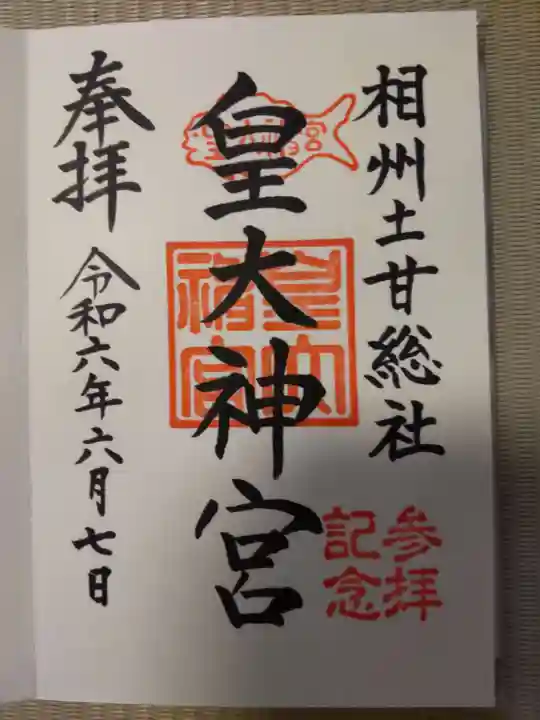 相州土甘総社
参拝
記念
皇大神宮
皇大神宮
皇大
神宮
奉拝
令和六年六月七日